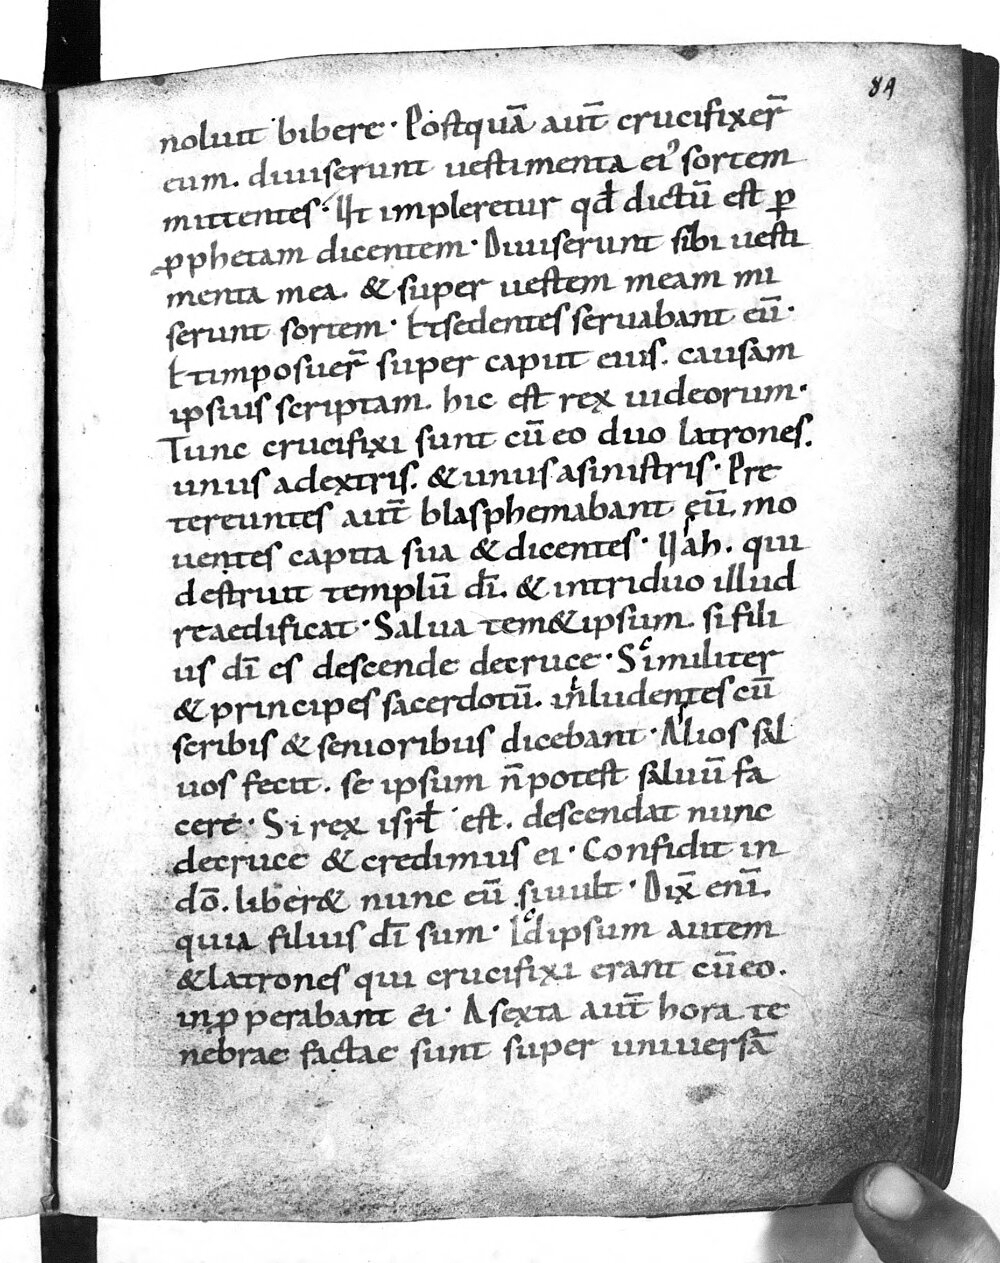 84
noluit bibere · Postquā aut̄ crucifixer̄
eum. diuiserunt uestimenta ei' sortem
mittentes · Ut impleretur qđ dictū est ꝑ
ꝓphetam dicentem · Diuiserunt sibi uesti
menta mea. & super uestem meam mi
serunt sortem · Et sedentes seruabant eū ·
Et imposuer̄ super caput eius. causam
ipsius scriptam. hic est rex iudeorum ·
Tunc crucifixi sunt cū eo duo latrones.
unus adextris. & unus asinistris · Pre
tereuntes aut̄ blasphemabant eū. mo
uentes capita sua & dicentes · Uah. qui
destruit templū dī. & intriduo illud
reaedificat · Salua tem&ipsum. si fili
us dī es descende decruce · Similiter
& principes sacerdotū. inludentes cū
scribis & senioribus dicebant · Alios sal
uos fecit. se ipsum n̄ potest saluū fa
cere · Si rex isrł est. descendat nunc
decruce & credimus ei · Confidit in
dō. liber& nunc eū siuult · Dix̄ enī.
quia filius dī sum · Idipsum autem
& latrones qui crucifixi erant cū eo.
inꝓperabant ei · A sexta aut̄ hora te
nebrae factae sunt super uniuersā